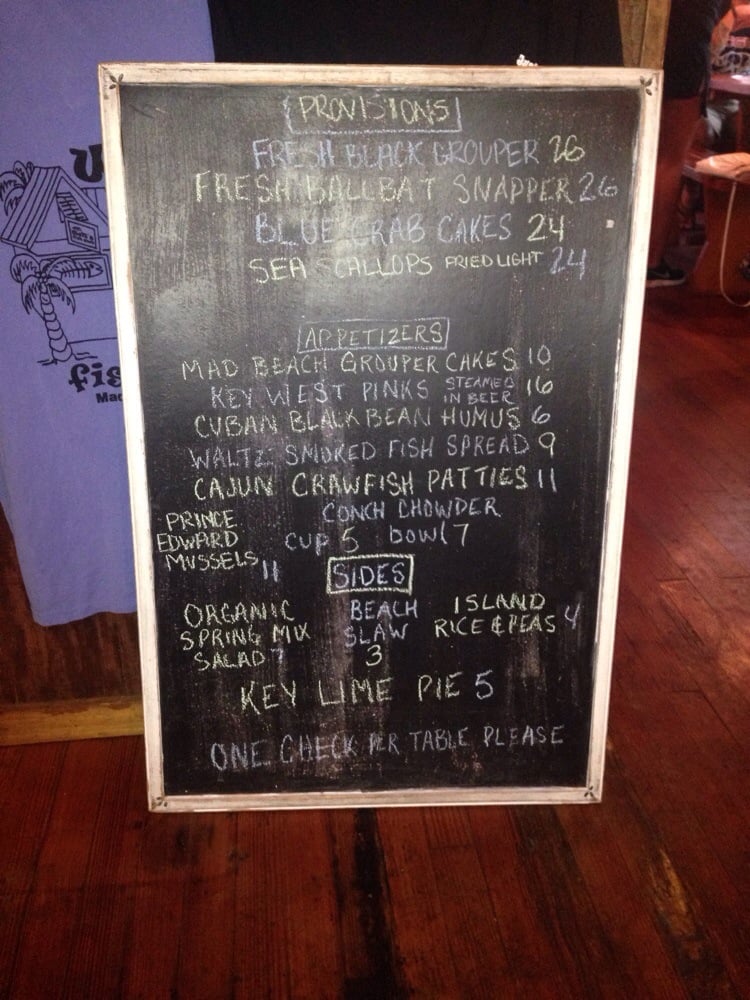 PROVISIONS
FRESH BLACK GROUPER 26
FRESH BALLBAT SNAPPER 26
BLUE CRAB CAKES 24
SEA SCALLOPS FRIED LIGHT 24
APPETIZERS
MAD BEACH GROUPER CAKES 10
KEY WEST PINKS STEAMED IN BEER 16
CUBAN BLACK BEAN HUMUS 6
WALTZ SMOKED FISH SPREAD 9
CAJUN CRAWFISH PATTIES 11
CONCH CHOWDER
cup 5 bowl 7
PRINCE
EDWARD
MUSSELS 11
SIDES
ORGANIC
SPRING MIX
SALAD 7
BEACH
SLAW
3
ISLAND
RICE & PEAS 4
KEY LIME PIE 5
ONE CHECK PER TABLE PLEASE
fis
Mad